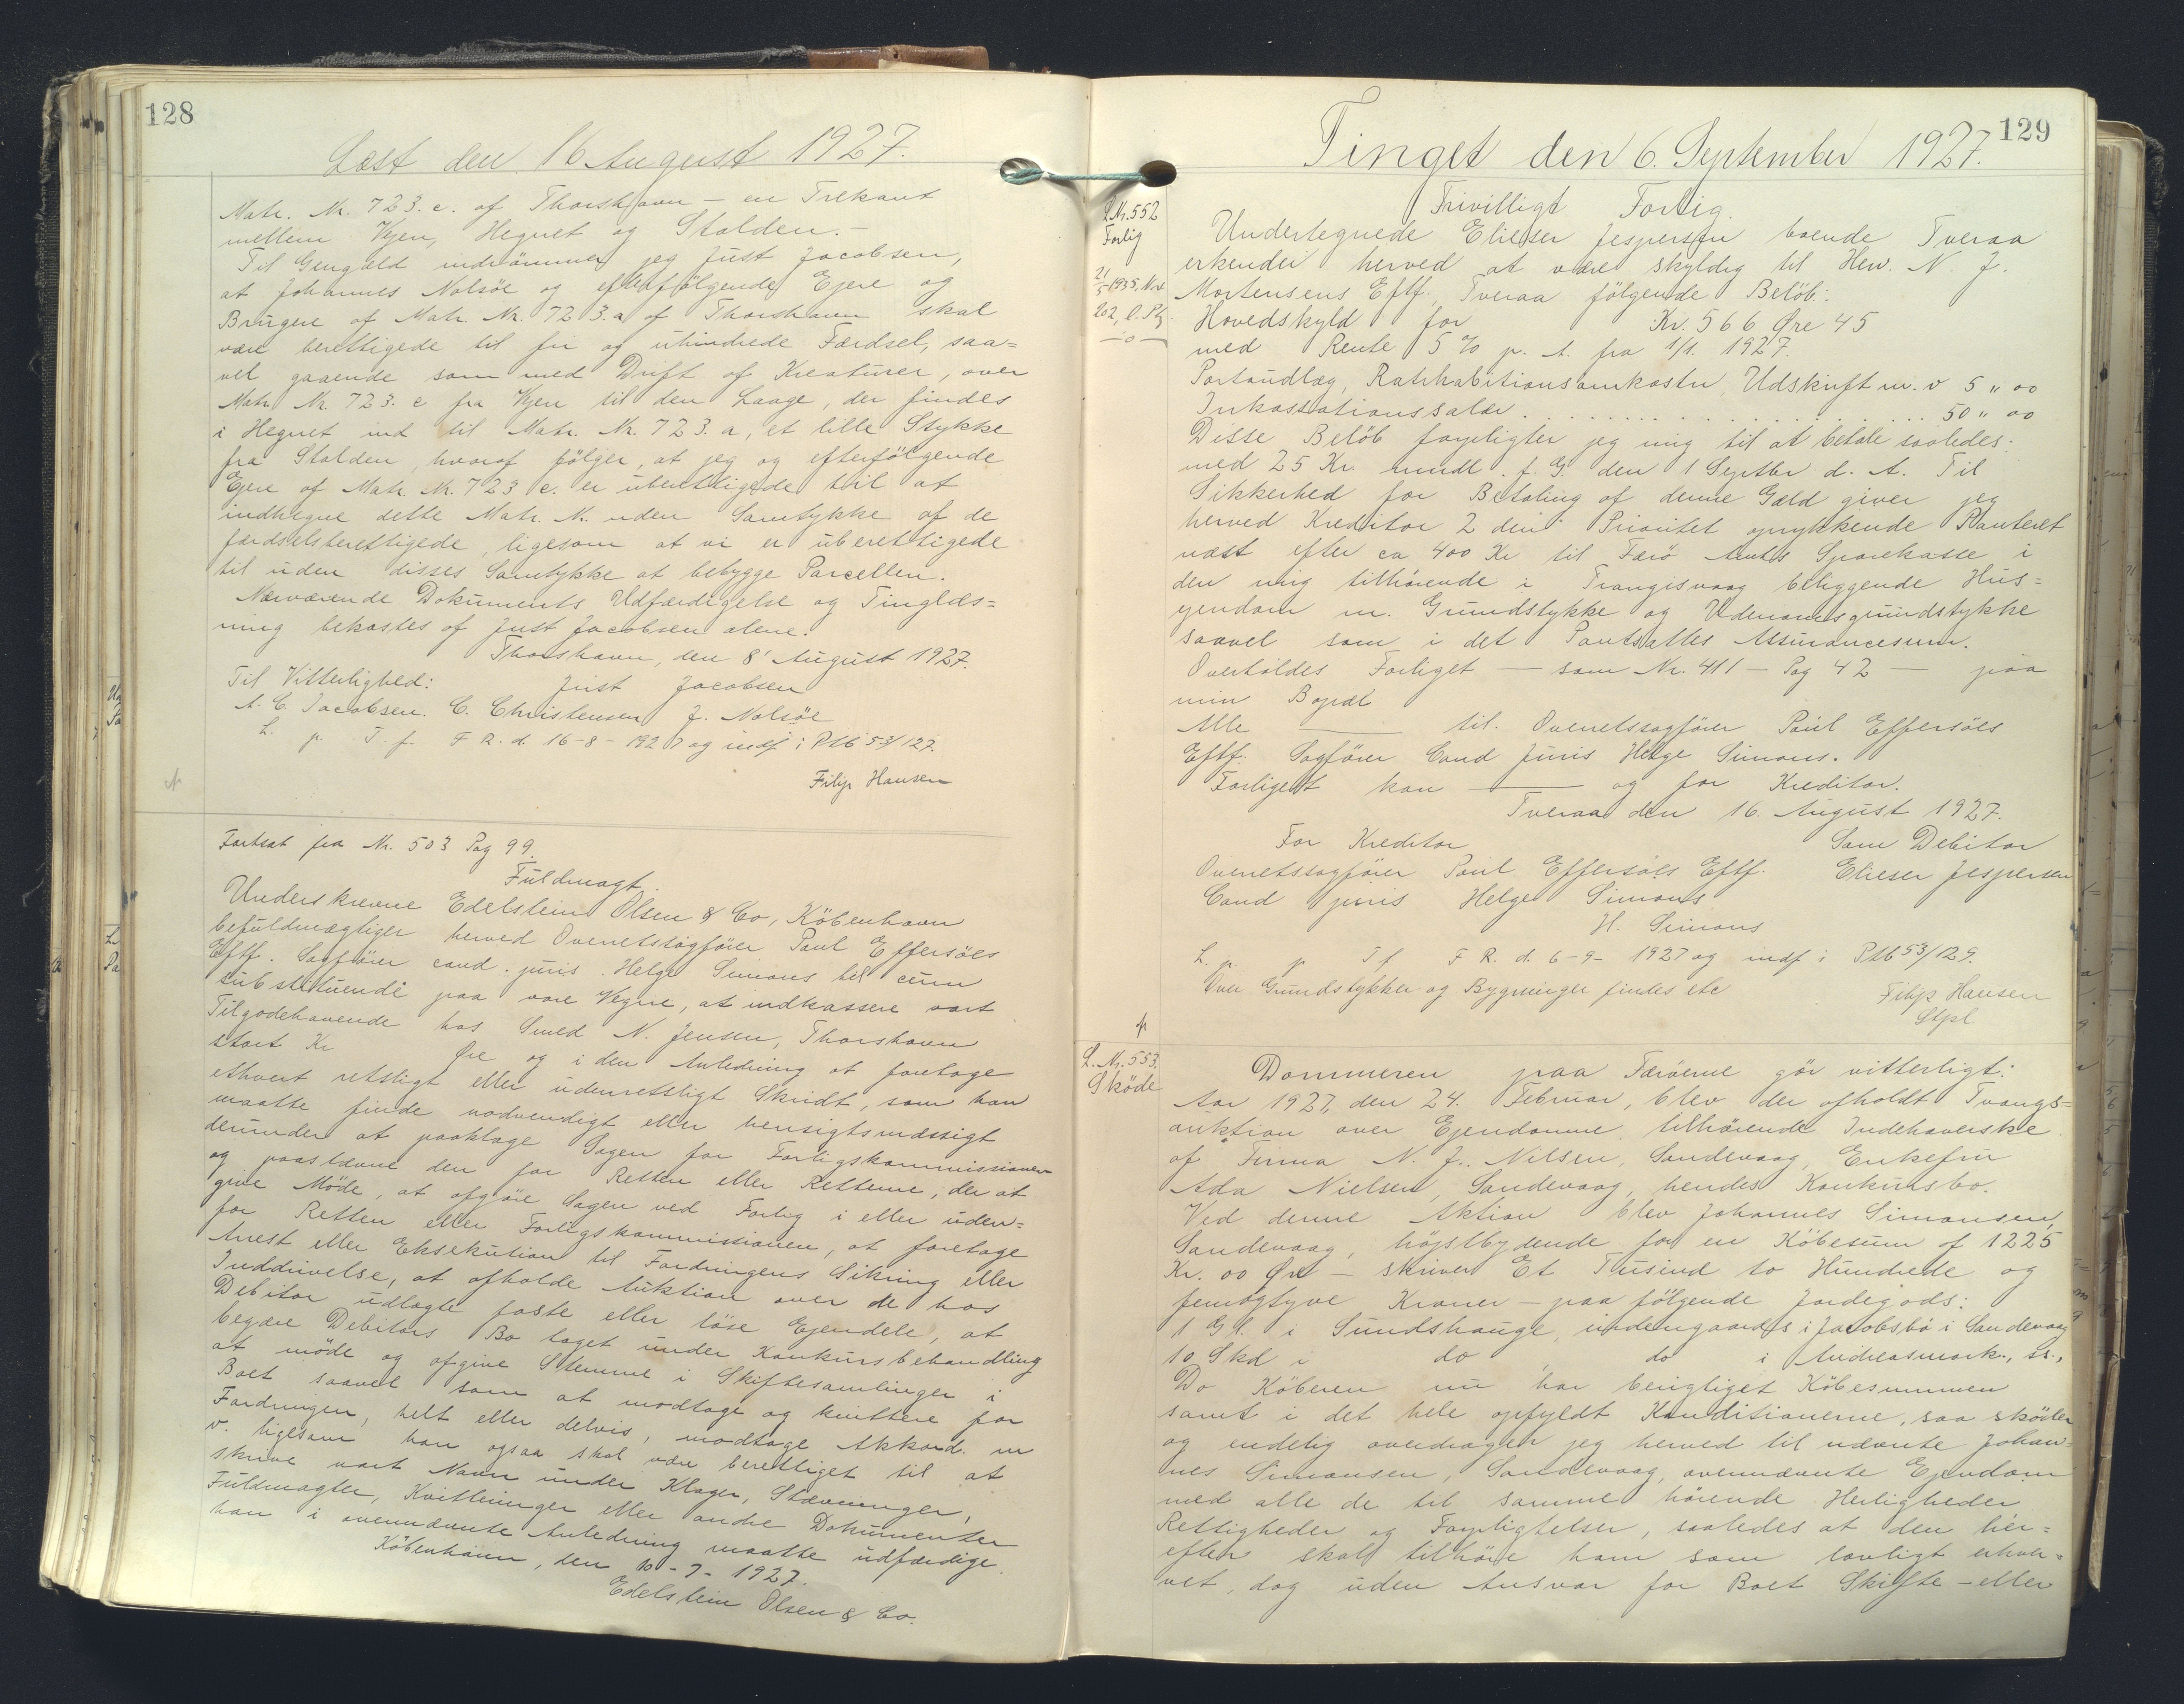 128
Læst den 16 August 1927.
Matr. Nr. 723.c. af Thorshavn – en Trekant
mellem Vejen, Hegnet og Stalden.–
Til Gengæld indrömmer jeg Just Jacobsen,
at Johannes Nolsöe og efterfölgende Ejere og
Brugere af Matr. Nr. 723.a af Thorshavn skal
være berettigede til fri og uhindrede Færdsel, saa=
vel gaaende som med Drift af Kreaturer, over
Matr. Nr. 723. c fra Vejen til den Laage, der findes
i Hegnet ind til Matr. Nr. 723. a, et lille Stykke
fra Stalden, hvoraf fölger, at jeg og efterfölgende
Ejere af Matr. Nr. 723 c. er uberettigede til at
indhegne dette Matr. Nr. uden Samtykke af de
færdselsberettigede, ligesom at vi er uberettigede
til uden disses Samtykke at bebygge Parcellen.
Nærværende Dokuments Udfærdigelse og Tinglæs=
ning bekostes af Just Jacobsen alene.
Thorshavn, den 8' August 1927.
Til Vitterlighed: Just Jacobsen
A. C. Jacobsen. C. Christensen J. Nolsöe
L. p T. f. F R. d. 16-8-1927 og indf i Ptb 53/127.
Filip Hansen
Fortsat fra Nr. 503 Pag 99.
Fuldmagt.
Underskrevne Edelstein Olsen & Co, København
befuldmægtiger herved Overretssagfører Poul Effersöes
Eftf. Sagfører cand. juris. Helge Simons til cum
substituendi paa vore Vegne, at indkassere vort
Tilgodehavende hos Smed N. Jensen, Thorshavn
stort Kr Øre og i den Anledning at foretage
ethvert retsligt eller udenretsligt Skridt, som han
maatte finde nødvendigt eller hensigtsmæssigt
derunder at paaklage Sagen for Forligskommissionen
og paastævne den for Retten eller Retterne, der at
give Möde, at afgöre Sagen ved Forlig i eller uden=
for Retten eller Forligskommissionen, at foretage
Arrest eller Eksekution til Fordringens Sikring eller
Inddrivelse, at afholde Auktion over de hos
Debitor udlagte faste eller löse Ejendele, at
begære Debitors Bo taget under Konkursbehandling
at möde og afgive Stemme i Skiftesamlinger i
Boet saavel som at modtage og kvittere for
Fordringen, helt eller delvis, modtage Akkord. m
v. ligesom han ogsaa skal være berettiget til at
skrive vort Navn under Klager, Stævninger,
Fuldmagter, Kvitteringer eller andre Dokumenter
han i ovennævnte Anledning maatte udfærdige.
København, den 10-7-1927.
Edelstein Olsen & Co.
129
Tinget den 6. September 1927.
L. Nr. 552
Forlig
21/5-1935, Nr
202, l. Plg
—o—
Frivilligt Forlig.
Undertegnede Elieser Jespersen boende Tveraa
erkender herved at være skyldig til Herr. N. J.
Mortensens Eftf. Tveraa fölgende Belöb:
Hovedskyld for Kr. 566 Øre 45
med Rente 5 % p. A. fra 1/1. 1927.
Portoudlæg, Ratihabitionsomkoster, Udskrift m. v 5 " 00
Inkassationssalær. . . . . . . . . . . . . . . 50 " 00
Disse Belöb forpligter jeg mig til at betale saaledes:
med 25 Kr mndl. f. G. den 1 Septbr d. A. Til
Sikkerhed for Betaling af denne Gæld giver jeg
herved Kreditor 2 den Prioritet oprykkende Panteret
næst efter ca 400 Kr til Færö Amts Sparekasse i
den mig tilhörende i Trangisvaag beliggende Hus=
ejendom m. Grundstykke og Udenomsgrundstykke
saavel som i det Pantsattes Assurancesum.
Overholdes Forliget — som Nr. 411 – Pag 42 — paa
min Bopæl
Alle —— til. Overretssagfører Poul Effersöes
Eftf. Sagfører Cand Juris Helge Simons.
Forliget kan —— og for Kreditor.
Tveraa den 16. August 1927.
For Kreditor Som Debitor
Overretssagfører Poul Effersöes Eftf. Elieser Jespersen
Cand juris Helge Simons
H. Simons
L. p. p T f F R. d. 6-9-1927 og indf i Ptb 53/129.
Over Grundstykker og Bygninger findes etc
Filip Hansen
Stpl
L. Nr. 553.
Sköde
Dommeren paa Færöerne gör vitterligt:
Aar 1927, den 24. Februar, blev der afholdt Tvangs=
auktion over Ejendomme tilhörende Indehaverske
af Firma N. J. Nilsen, Sandevaag, Enkefru
Ada Nielsen, Sandevaag, hendes Konkursbo.
Ved denne Aktion blev Johannes Simonsen,
Sandevaag, höjstbydende for en Köbesum af 1225
Kr. 00 Øre – skriver Et Tusind to Hundrede og
femogtyve Kroner – paa fölgende Jordegods:
1 Gl. i Sundshauge, indengaards i Jacobsbö i Sandevaag
10 Skd i do do i Andreasmørk., ss.,
Do Köberen nu har berigtiget Köbesummen
samt i det hele opfyldt Konditionerne, saa sköder
og endelig overdrager jeg herved til nævnte Johan=
nes Simonsen, Sandevaag, ovennævnte Ejendom
med alle de til samme hörende Herligheder
Rettigheder og Forpligtelser, saaledes at den her=
efter skal tilhöre ham som lovligt erhver=
vet, dog uden Ansvar for Boet Skifte – eller